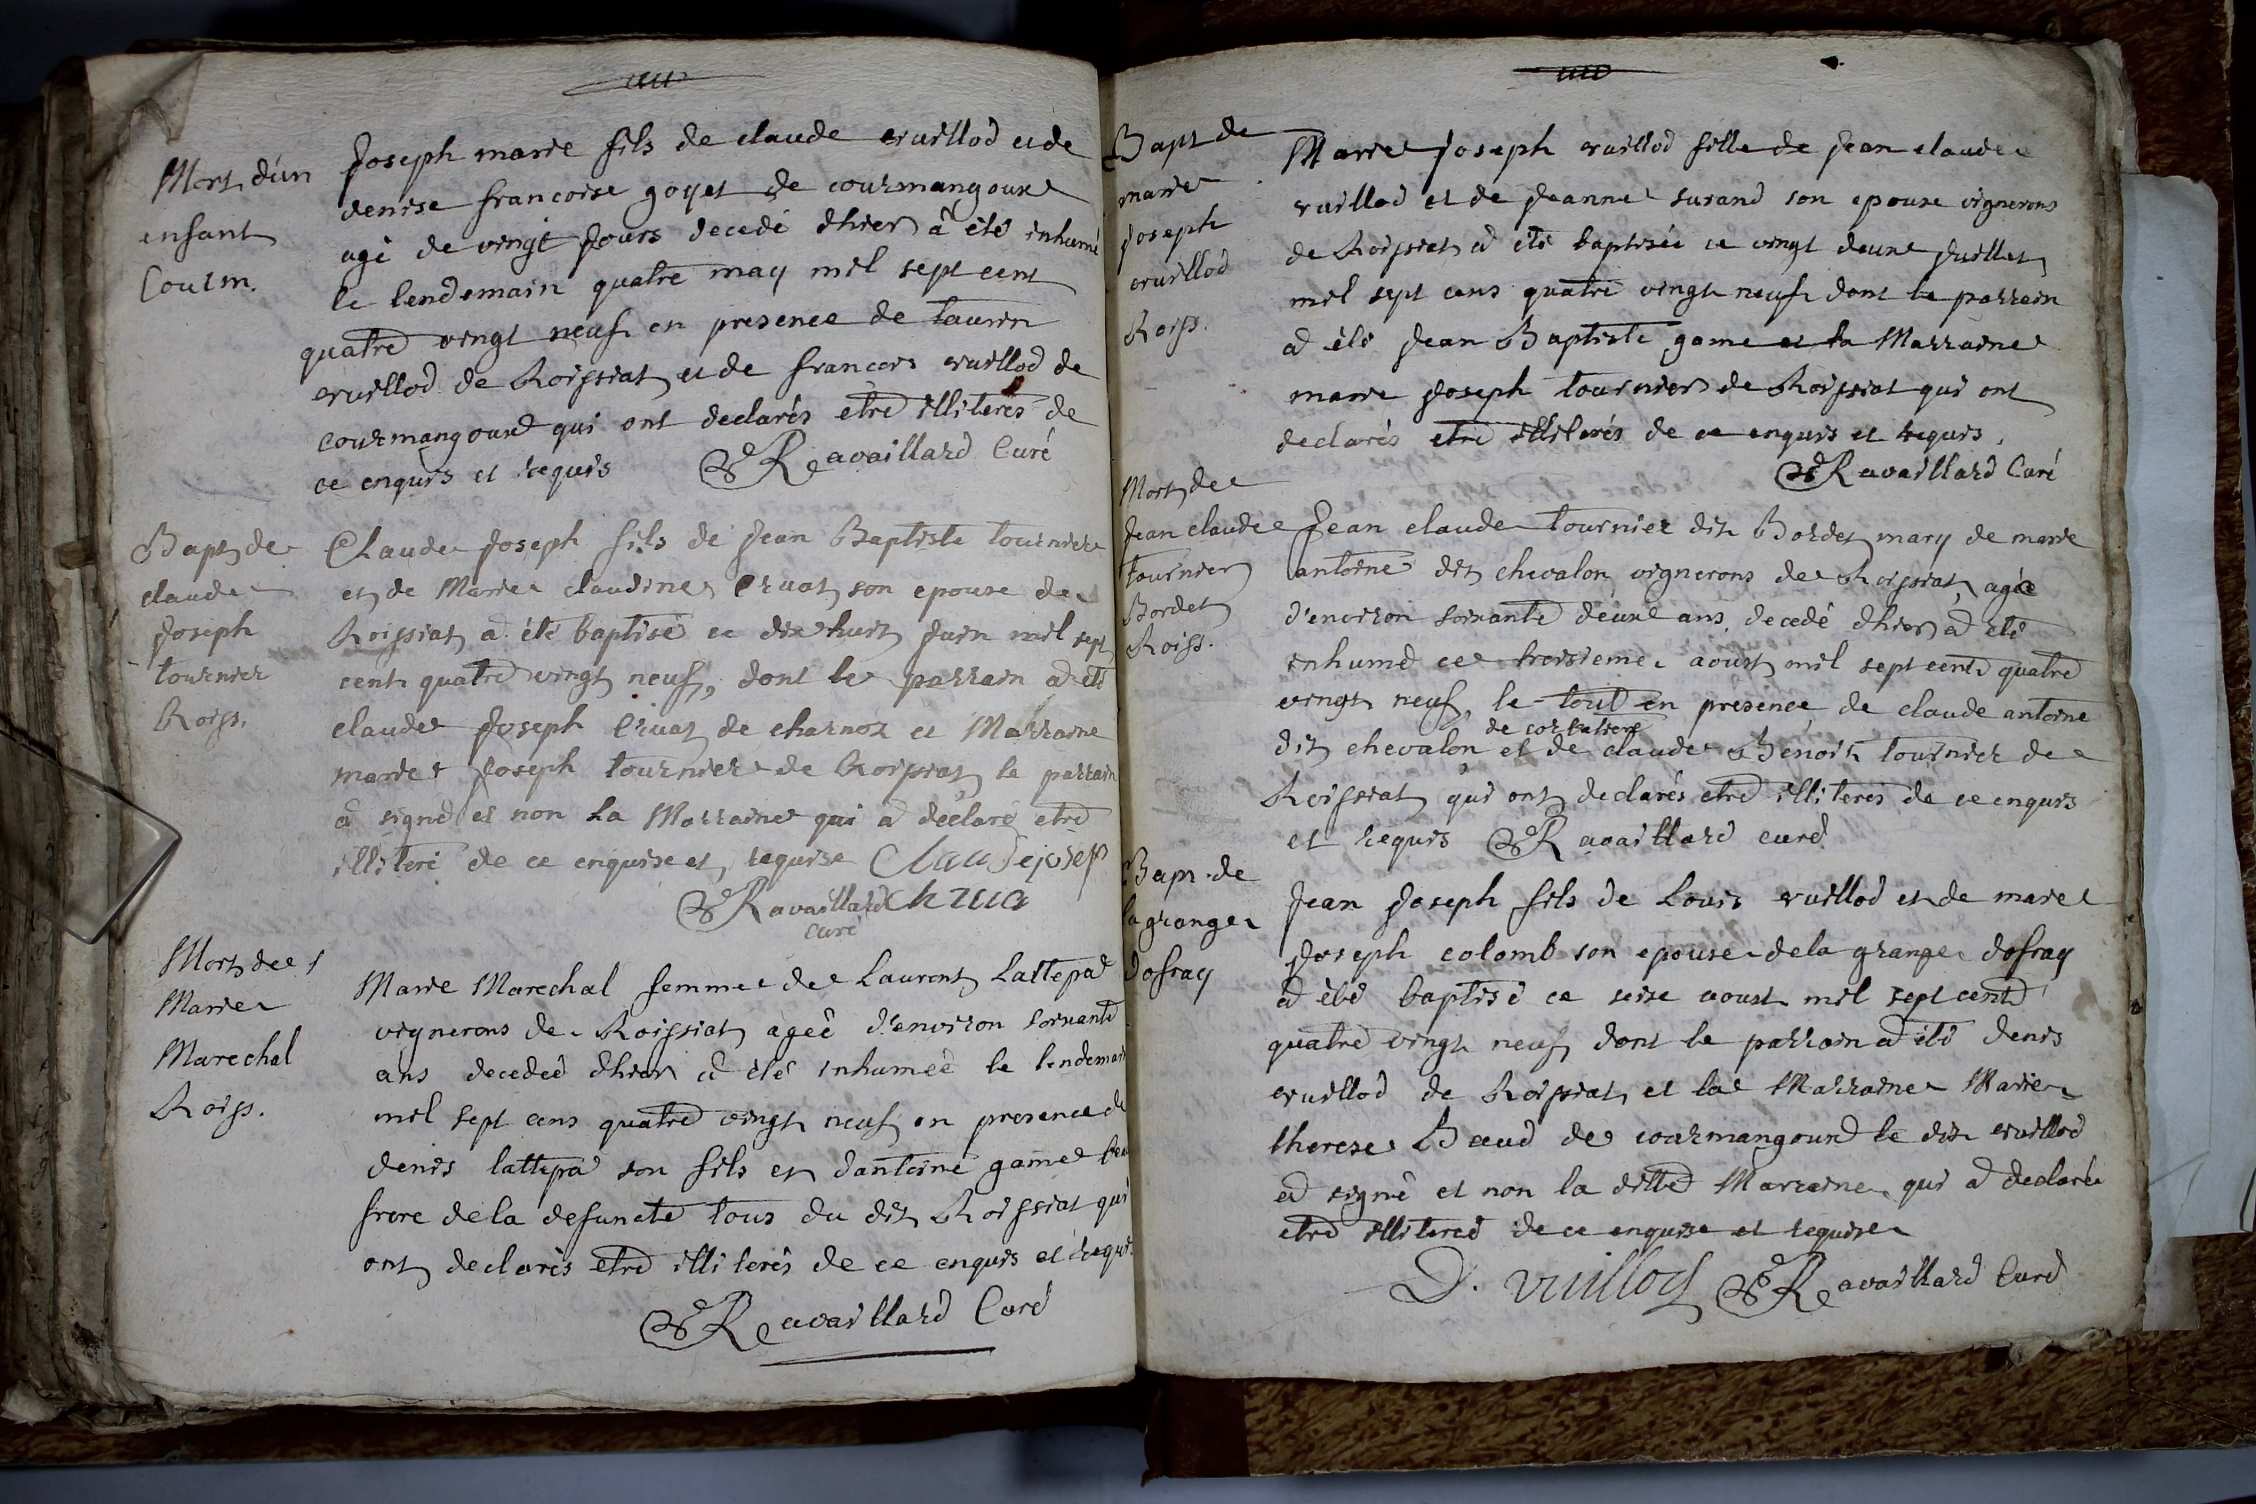 Mort d'un
enfant
Courm.
Joseph marie fils de claude vuillod et de
denise francoise goyet de courmangoux
agé de vingt jours decedé dhier à été inhumé
le lendemain quatre may mil sept cent
quatre vingt neuf en presence de taurin
vuillod de Roissiat et de francois vuillod de
courmangoux qui ont declarés etre illiterés de
ce enquis et requis Ravaillard Curé
Bapt de
claude
Joseph
tournier
Roiss.
Claude Joseph fils de Jean Baptiste tournier
et de Marie claudine Cruat son epouse de
Roissiat a été baptisé ce dix huit Juin mil sept
cent quatre vingt neuf, dont le parrain a été
claude Joseph Cruat de charnoz et Marraine
marie Joseph tournier de Roissiat le parrain
a signé et non La Marraine qui a déclaré etre
illiteré de ce enquise et requise Claudejosep
Ravaillard
curé
Mort de
Marie
Marechal
Roiss.
Marie Marechal femme de Laurent Lattepa
vignerons de Roissiat ageé d'environ soixante
ans decedeé dhier a été inhumeé le lendemain
mil sept cens quatre vingt neuf en presence de
denis lattepa son fils et dantoine game beau
frere dela defuncte tous du dit Roissiat qui
ont declarés etre illiterés de ce enquis et requis
Ravaillard Curé
Bapt de
marie
joseph
vuillod
Roiss.
Marie Joseph vuillod fille de Jean claude
vuillod et de Jeanne surand son epouse vignerons
de Roissiat a été baptisée ce vingt deux Juillet
mil sept cens quatre vingt neuf dont le parrain
a été Jean Baptiste game et la Marraine
marie Joseph tournier de Roissiat qui ont
declarés etre illiterés de ce enquis et requis.
Ravaillard Curé
Mort de
Jean claude
tournier
Bordet
Roiss.
Jean claude tournier dit Bordet mary de marie
antoine dit chevalon vignerons de Roissiat agée
d'environ soixante deux ans, decedé dhier a été
inhumé ce troisieme aoust mil sept cent quatre
vingt neuf, le tout en presence de claude antoine
de
dit chevalon et de claude Benoit tournier de
Roissiat qui ont declarés etre illiterés de ce enquis
et requis Ravaillard curé
Bapt. de
la grange
dofray
Jean Joseph fils de Louis vuillod et de marie
Joseph colomb son epouse dela grange dofray
a été baptisé ce seise aoust mil sept cent
quatre vingt neuf dont le parrain a été denis
vuillod de Roissiat et la Marraine Marie
therese Baud de courmangoux le dit vuillod
a signé et non la ditte Marraine qui a declarée
etre illitereé de ce enquise et requise
D. vuillod Ravaillard Curé